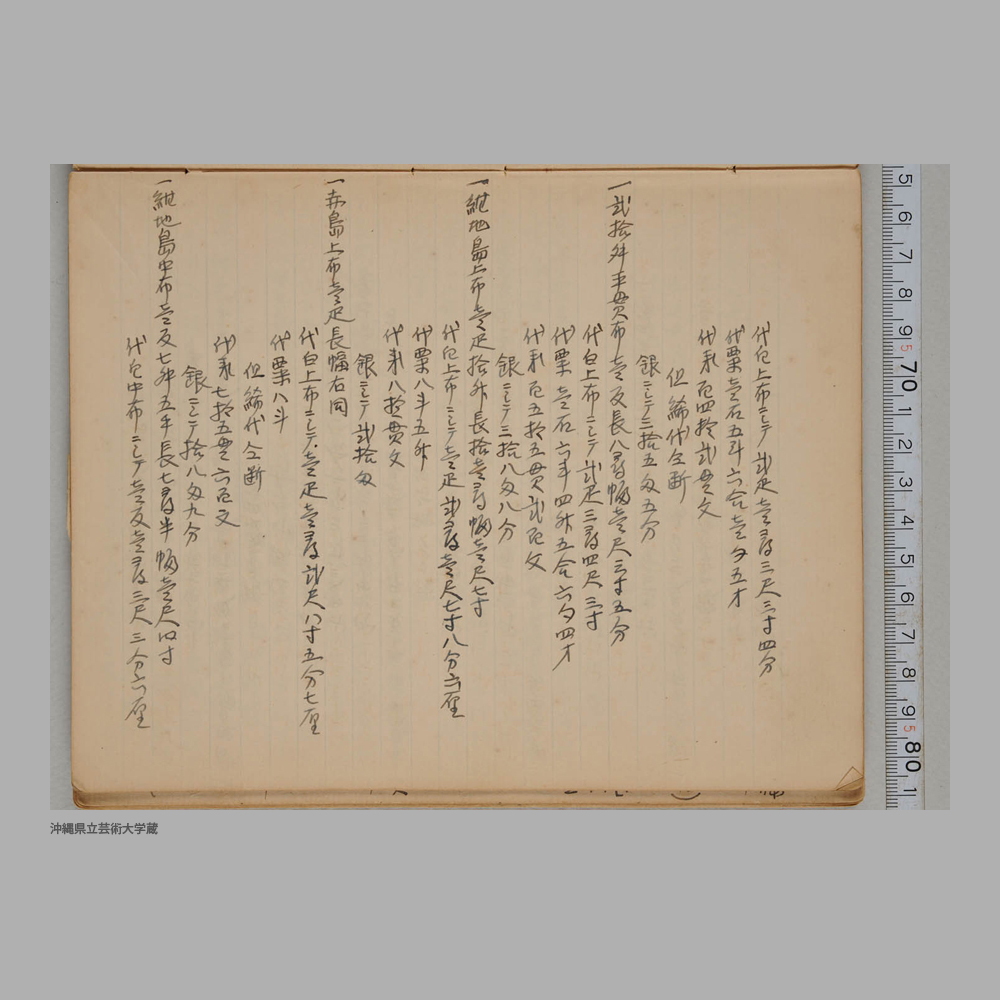 代白上布ニシテ弐疋壱尋三尺三寸四分
代粟壱石五斗六合壱夕五才
代銭百四拾弐貫文
但綛代仝断
銀ニシテ三拾五匁五分
一弐拾舛平貫布壱反長八尋幅壱尺三寸五分
代白上布ニシテ弐疋三尋四尺三寸
代粟壱石六斗四舛五合六夕四才
代銭百五拾五貫弐百文
銀ニシテ三拾八匁八分
一紺地島上布壱疋拾舛長拾壱尋幅壱尺七寸
代白上布ニシテ壱疋弐尋壱尺七寸八分六厘
代粟八斗五舛
代銭八拾貫文
銀ニシテ弐拾匁
一赤島上布壱疋長幅右同
代白上布ニシテ壱疋壱尋弐尺八寸五分七厘
代粟八斗
但綛代仝断
代銭七拾五貫六百文
銀ニシテ拾八匁九分
一紺地島中布壱反七舛五手長七尋半幅壱尺四寸
代白中布ニシテ壱反壱尋三尺三分六厘
5 6 7 8 9 5 70 1 2 3 4 5 6 7 8 9 5 80 1
沖縄県立芸術大学蔵